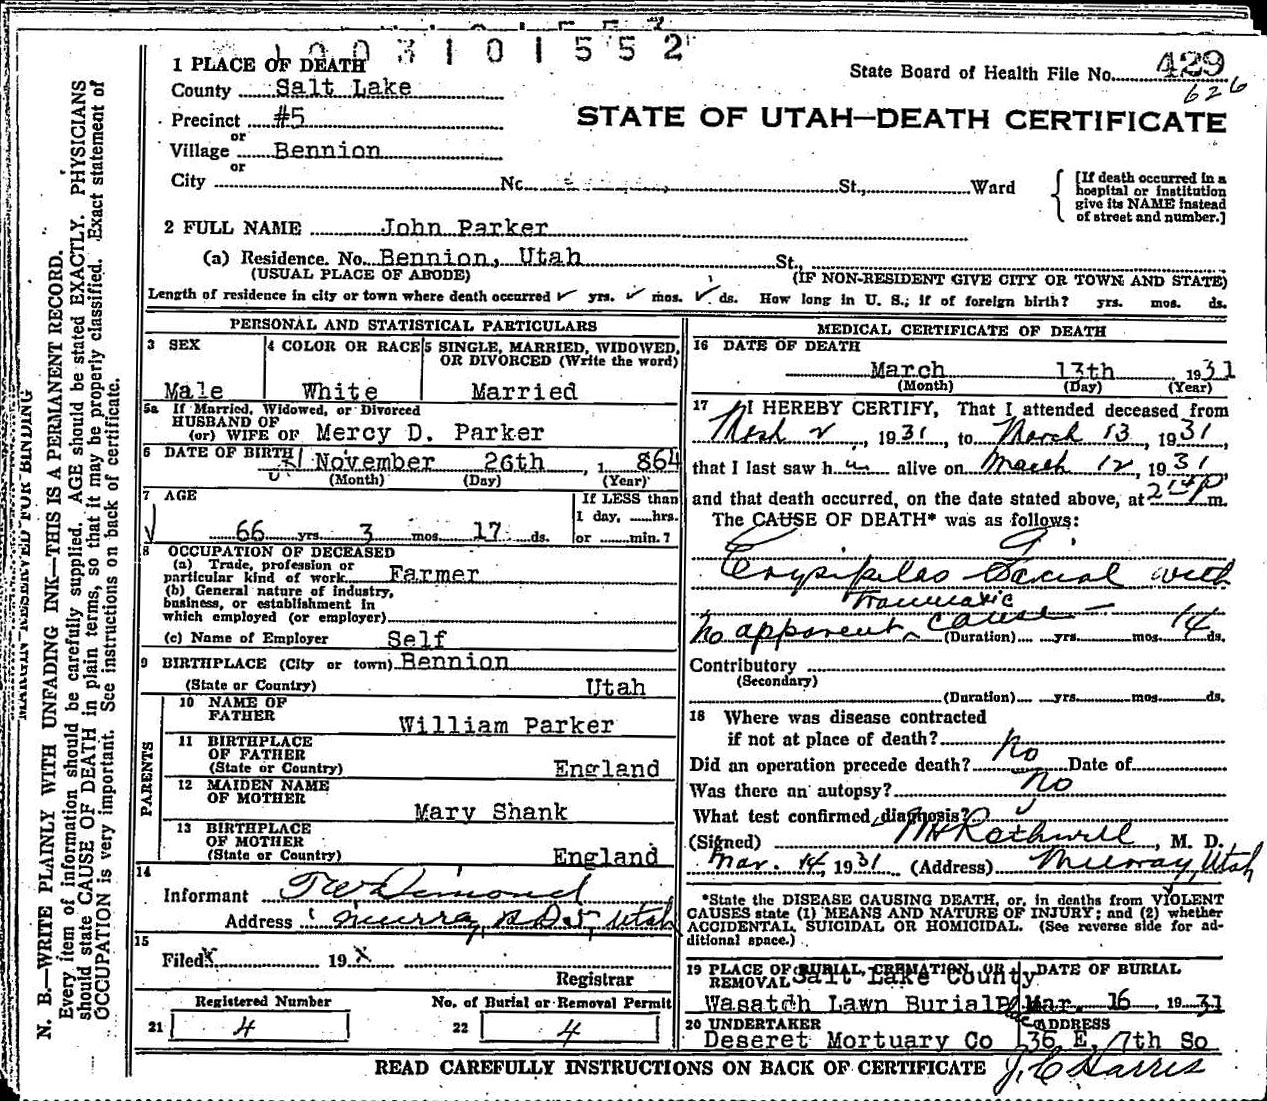 1003101552
1 PLACE OF DEATH
State Board of Health File No. 429
626
County Salt Lake
Precinct #5
STATE OF UTAH—DEATH CERTIFICATE
or
Village Bennion
or
City No. St., Ward
[If death occurred in a hospital or institution give its NAME instead of street and number.]
2 FULL NAME John Parker
(a) Residence. No. Bennion, Utah St.,
(USUAL PLACE OF ABODE) (IF NON-RESIDENT GIVE CITY OR TOWN AND STATE)
Length of residence in city or town where death occurred yrs. mos. ds. How long in U. S.; if of foreign birth? yrs. mos. ds.
PERSONAL AND STATISTICAL PARTICULARS
3 SEX
Male
4 COLOR OR RACE
White
5 SINGLE, MARRIED, WIDOWED, OR DIVORCED (Write the word)
Married
5a If Married, Widowed, or Divorced
HUSBAND OF
(or) WIFE OF Mercy D. Parker
6 DATE OF BIRTH
November 26th, 1864
(Month) (Day) (Year)
7 AGE
66 yrs. 3 mos. 17 ds.
If LESS than
1 day, hrs.
or min.?
8 OCCUPATION OF DECEASED
(a) Trade, profession or
particular kind of work Farmer
(b) General nature of industry,
business, or establishment in
which employed (or employer)
(c) Name of Employer Self
9 BIRTHPLACE (City or town) Bennion
(State or Country) Utah
PARENTS
10 NAME OF
FATHER William Parker
11 BIRTHPLACE
OF FATHER
(State or Country) England
12 MAIDEN NAME
OF MOTHER Mary Shank
13 BIRTHPLACE
OF MOTHER
(State or Country) England
14
Informant
Address Murray, Utah
15
Filed 19
Registrar
Registered Number No. of Burial or Removal Permit
21 4 22 4
MEDICAL CERTIFICATE OF DEATH
16 DATE OF DEATH
March 13th 1931
(Month) (Day) (Year)
17 I HEREBY CERTIFY, That I attended deceased from
1931, to March 13, 1931,
that I last saw h alive on March 12, 1931,
and that death occurred, on the date stated above, at m.
The CAUSE OF DEATH* was as follows:
Erysipelas Facial with
Traumatic
no apparent cause (Duration) yrs. mos. 14 ds.
Contributory
(Secondary)
(Duration) yrs. mos. ds.
18 Where was disease contracted
if not at place of death?
Did an operation precede death? No Date of
Was there an autopsy? No
What test confirmed diagnosis?
(Signed) Rothwell, M. D.
Mar. 14, 1931 (Address) Murray, Utah
*State the DISEASE CAUSING DEATH, or, in deaths from VIOLENT
CAUSES state (1) MEANS AND NATURE OF INJURY; and (2) whether
ACCIDENTAL, SUICIDAL OR HOMICIDAL. (See reverse side for ad-
ditional space.)
19 PLACE OF BURIAL, CREMATION, OR
REMOVAL Salt Lake County
Wasatch Lawn Burial Place
DATE OF BURIAL
Mar. 16, 1931
20 UNDERTAKER
Deseret Mortuary Co
ADDRESS
36 E. 7th So
READ CAREFULLY INSTRUCTIONS ON BACK OF CERTIFICATE J. C. Harris
MARGIN RESERVED FOR BINDING
N. B.—WRITE PLAINLY WITH UNFADING INK—THIS IS A PERMANENT RECORD.
Every item of information should be carefully supplied. AGE should be stated EXACTLY. PHYSICIANS
should state CAUSE OF DEATH in plain terms, so that it may be properly classified. Exact statement of
OCCUPATION is very important. See instructions on back of certificate.